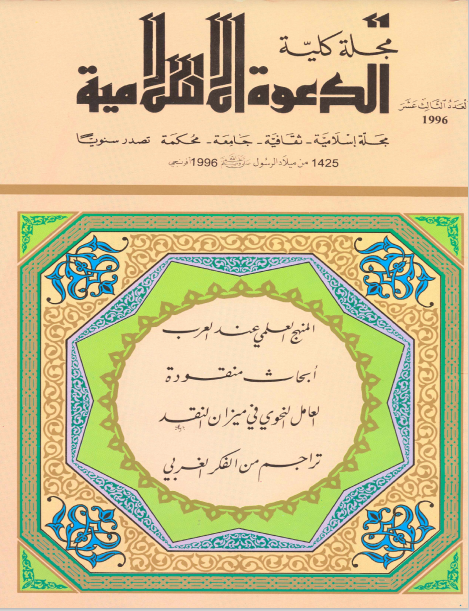 مجلة كليّة
الدعوة الإسلامية
لعدد الثالث عشر
1996
مجلة إسلامية - ثقافية - جامعة - محكمة تصدر سنويًّا
1425 من ميلاد الرسول ﷺ 1996 أفرنجي
المنهج العلمي عند العرب
أبحاث منقودة
العامل النحوي في ميزان النقد
تراجم من الفكر الغربي